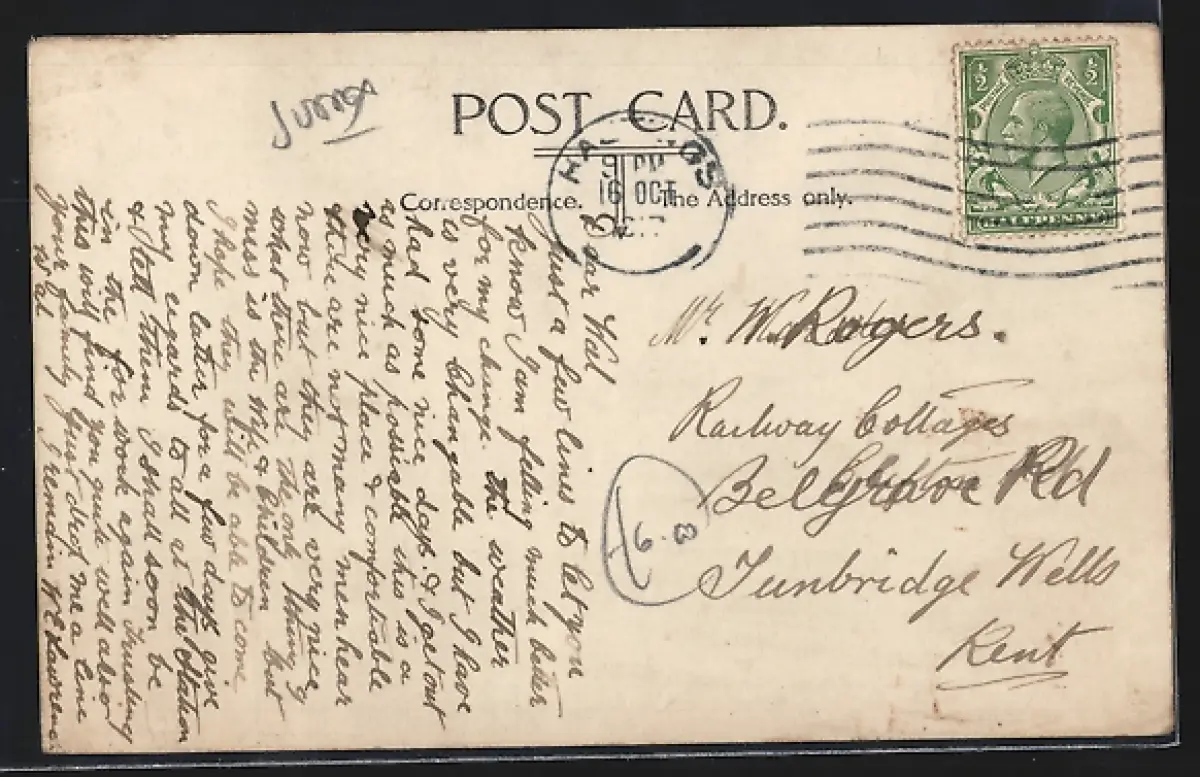 POST CARD.
Correspondence.
The Address only.
9 PM
16 OCT
½ ½
HALFPENNY
Mr. W. Rogers.
Railway Cottages
Belgrove Rd
Tunbridge Wells
Kent
Dear Wal
Just a few lines to let you
know I am felling much better
for my change. the weather
is very Changable but I have
had some nice days. & I get out
as much as possible this is a
very nice place & comfortable
there are not many men hear
now but they are very nice
what there are. the only thing I
miss is the wife & Children but
I hope they will be able to come
down later for a few days give
my regards to all at the Station
& tell them I shall soon be
in the for work again Trusting
this will find you quite well also
your family Just drop me a line
I remain W E Lawrence